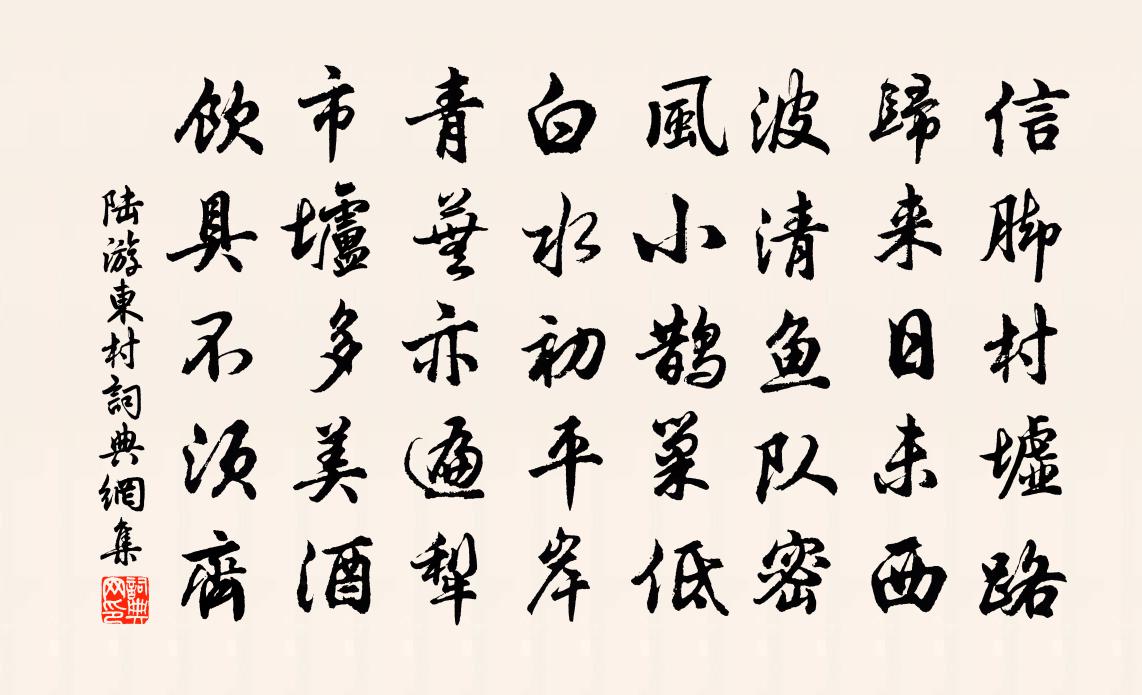 信脚村墟路
歸来日未西
波清魚队密
風小鵲巢低
白水初平岸
青蕪亦遍犁
市壚多美酒
飲具不須齊
陸游東村詞典網集
詞典网印